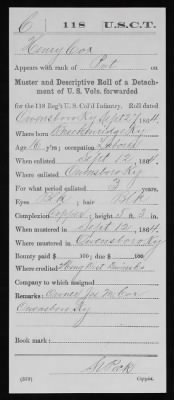 C | 118 | U.S.C.T.
Henry Cox
Appears with rank of Pvt on
Muster and Descriptive Roll of a Detach-
ment of U. S. Vols. forwarded
for the 118 Reg't U. S. Col'd Infantry. Roll dated
Owensboro Ky Sept 27, 1864.
Where born Breckinridge Ky
Age 16 y'rs; occupation Laborer
When enlisted Sept 12, 1864.
Where enlisted Owensboro Ky
For what period enlisted 3 years.
Eyes Blk; hair Blk
Complexion Copper; height 5 ft. 3 in.
When mustered in Sept 12, 1864.
Where mustered in Owensboro Ky
Bounty paid $ 100; due $ 100
Where credited
Company to which assigned
Remarks: Owner Jos M Cox
Owensboro Ky
Book mark:
(339) Copyist.